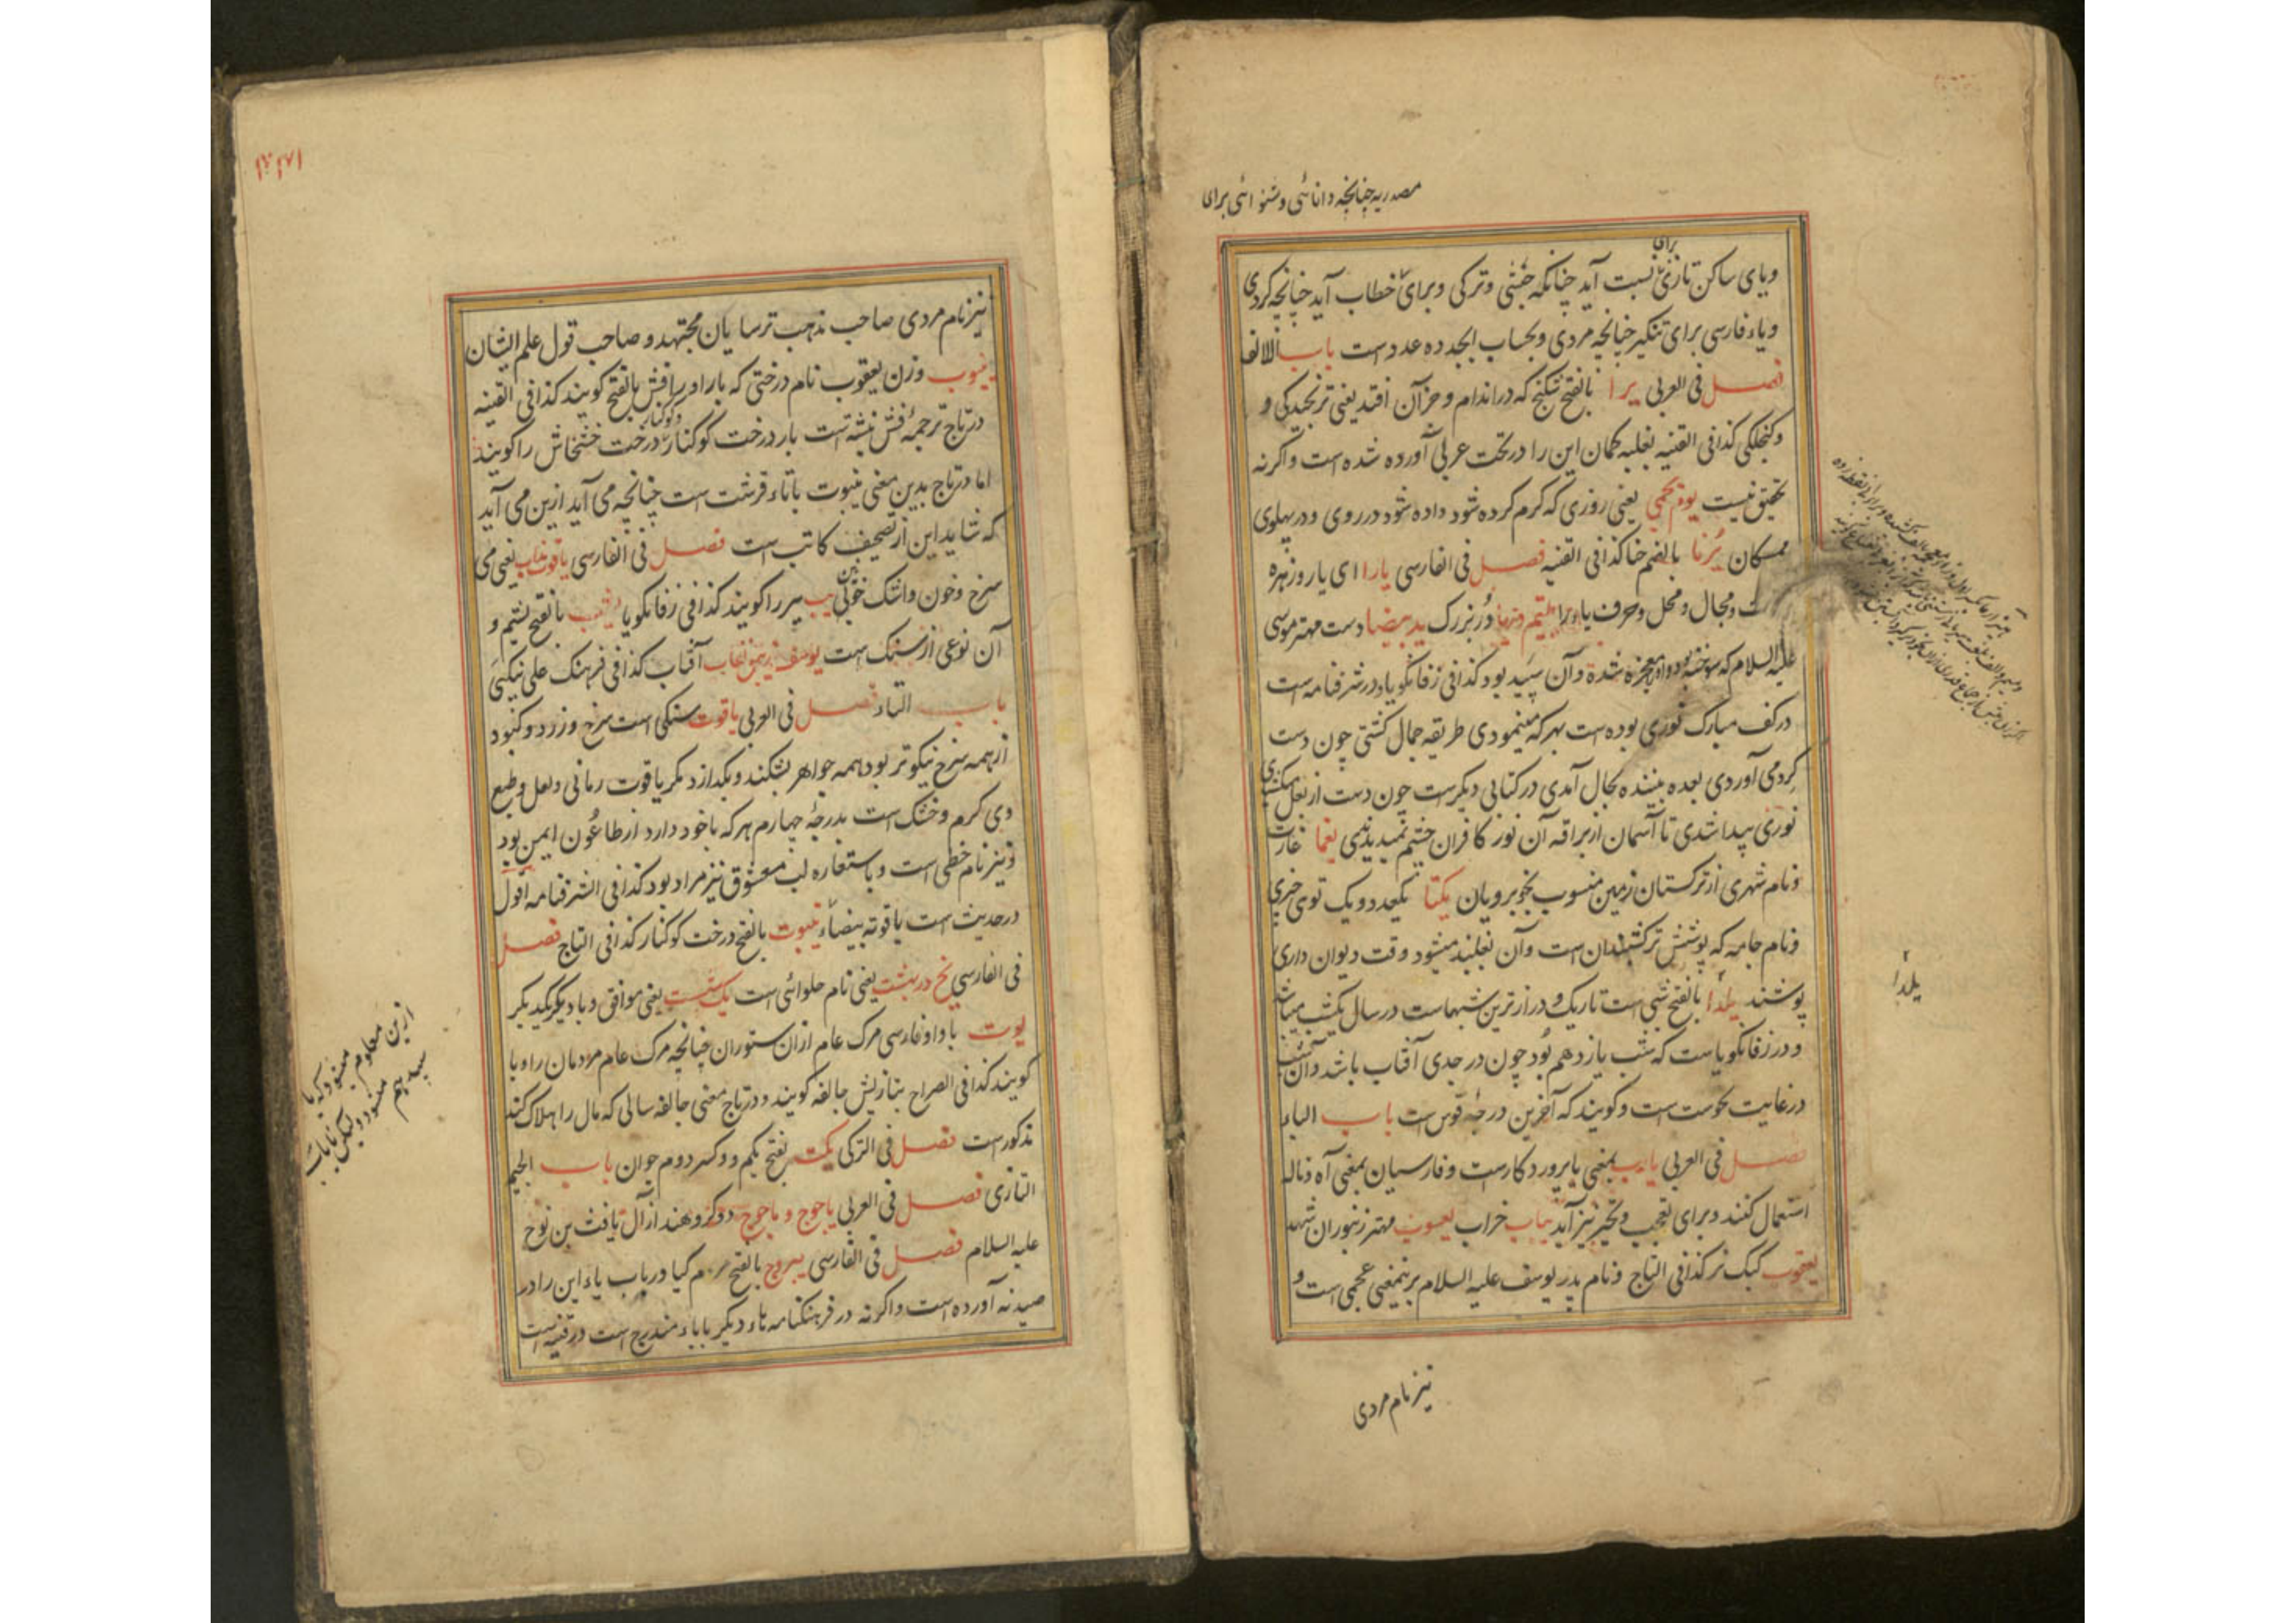 مصدریه چنانچه دانائی و شنوائی برای
ویای ساکن تازی برای نسبت آید چنانکه حبشی و ترکی و برای خطاب آید چنانچه کردی
ویاء فارسی برای تنکیر چنانچه مردی و بحساب ابجد ده عدد است باب الالف
فصل فی العربی یرا بالفتح شکنج که در اندام و جز آن افتد یعنی ترنجیدکی و
و کنجلکی کذا فی القنیه بغلبه کمان این را در تحت عربی آورده شده است و اکرنه
تحقیق نیست یوم یحمی یعنی روزی که کرم کرده شود داده شود در روی و در پهلوی
ممسکان یرنا بالضم حنا کذا فی القنیه فصل فی الفارسی یارا ای یار و زهره
و مجال و محل و حرف یاء و را در بزرک ید بیضا دست مهتر موسی
علیه السلام که سوخته بود و او معجزه شده و آن سپید بود کذا فی زفانکویا و در شرفنامه است
در کف مبارک نوری بوده است بهر که مینمودی طریقه جمال کشتی چون دست
کرد می آوردی بعده بیننده بحال آمدی در کتابی دیکرست چون دست از بغل
نوری پیدا شدی تا آسمان از براقه آن نور کافران چشم یغما غارت
و نام شهری از ترکستان زمین منسوب بخوبرویان یکتا یکعدد و یک توی چیزی
و نام جامه که پوشش است و آن وقت دیوان داری
پوشند یلدا بالفتح شبی است تاریک و درازترین شبهاست در سال یکشب میباشد
و در زفانکویاست که شب یازدهم بود چون در جدی آفتاب باشد و آن شب
در غایت نحوست است و کویند که آخرین درجه قوس است باب الباء
فصل فی العربی یارب بمعنی یا پروردکارست و فارسیان بمعنی آه و ناله
استعمال کنند و برای تعجب و تحیر نیز آید یباب خراب یعسوب مهتر زنبوران شهد
یعقوب کبک نر کذا فی التاج و نام پدر یوسف علیه السلام برینمعنی عجمی است و
نیز نام مردی
یلدا
نیز نام مردی صاحب مذهب ترسایان مجتهد و صاحب قول علم ایشان
ینبوب وزن یعقوب نام درختی که بار او را فش بالفتح کویند کذا فی القنیه
در تاج ترجمه فش نبشته است بار درخت کوکنار و کوکنار درخت خشخاش را کویند
اما در تاج بدین معنی ینبوت با تاء قرشت است چنانچه می آید ازین می آید
که شاید این از تصحیف کاتب است فصل فی الفارسی یاقوت ناب یعنی می
سرخ و خون و اشک خونی یب تیر را کویند کذا فی زفانکویا بالفتح یشم و
آن نوعی از سنک است آفتاب کذا فی فرهنک علی نیکبی
باب التاء فصل فی العربی یاقوت سنکی است سرخ و زرد و کبود
از همه سرخ نیکوتر بود همه جواهر بشکند و بکدازد مکر یاقوت رمانی و لعل و طبع
وی کرم و خشک است بدرجۀ چهارم هر که با خود دارد از طاعون ایمن بود
و نیز نام خطی است و باستعاره لب معشوق نیز مراد بود کذا فی الشرفنامه اقول
در حدیث است یاقوته بیضاء ینبوت بالفتح درخت کوکنار کذا فی التاج فصل
فی الفارسی یخ در بهشت یعنی نام حلوائی است یک دست یعنی موافق و با دیکر
یوت با واو فارسی مرک عام از آن ستوران چنانچه مرک عام مردمان را وبا
کویند کذا فی الصراح بتازیش جالفه کویند و در تاج معنی جالفه سالی که مال را هلاک کند
مذکورست فصل فی الترکی یکت بفتح یکم و کسر دوم جوان باب الجیم
التازی فصل فی العربی یاجوج و ماجوج دو کروهند از آل یافث بن نوح
علیه السلام فصل فی الفارسی یبروج بالفتح کیا در باب یاء این را در
صیدنه آورده است و اکرنه در فرهنکنامه هاء دیکر با باء مندرج است در قنیه است
ازین معلوم میشود که